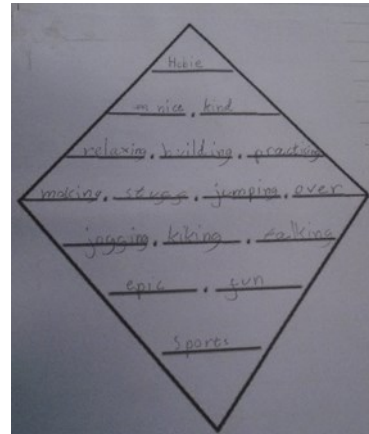 Hobie
nice, kind
relaxing, building, practicing
making, stuff, jumping, over
jogging, kiking, talking
epic, fun
Sports